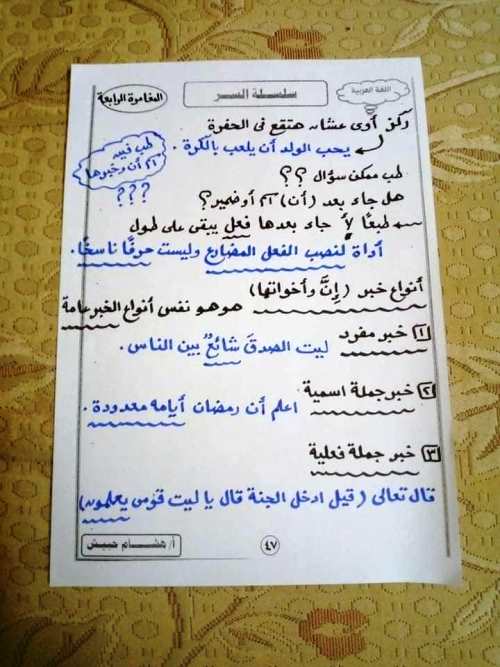 اللغة العربية
سلسلة السر
المغامرة الرابعة
ركن أوى عشان هتقع فى الحفرة
يحب الولد أن يلعب بالكرة .
طب فيه
اسم أن وخبرها
؟ ؟ ؟
طب ممكن سؤال ؟ ؟
هل جاء بعد (أن) اسم أو ضمير ؟
طبعًا لأ جاء بعدها فعل يبقى على طول
أداة لنصب الفعل المضارع وليست حرفًا ناسخًا .
أنواع خبر (إنَّ وأخواتها) هو هو نفس أنواع الخبر عامة
١ خبر مفرد
ليت الصدقَ شائعٌ بين الناس .
٢ خبر جملة اسمية
اعلم أن رمضان أيامه معدودة .
٣ خبر جملة فعلية
قال تعالى (قيل ادخل الجنة قال يا ليت قومى يعلمون)
٤٧
أ/ هشام حبيش